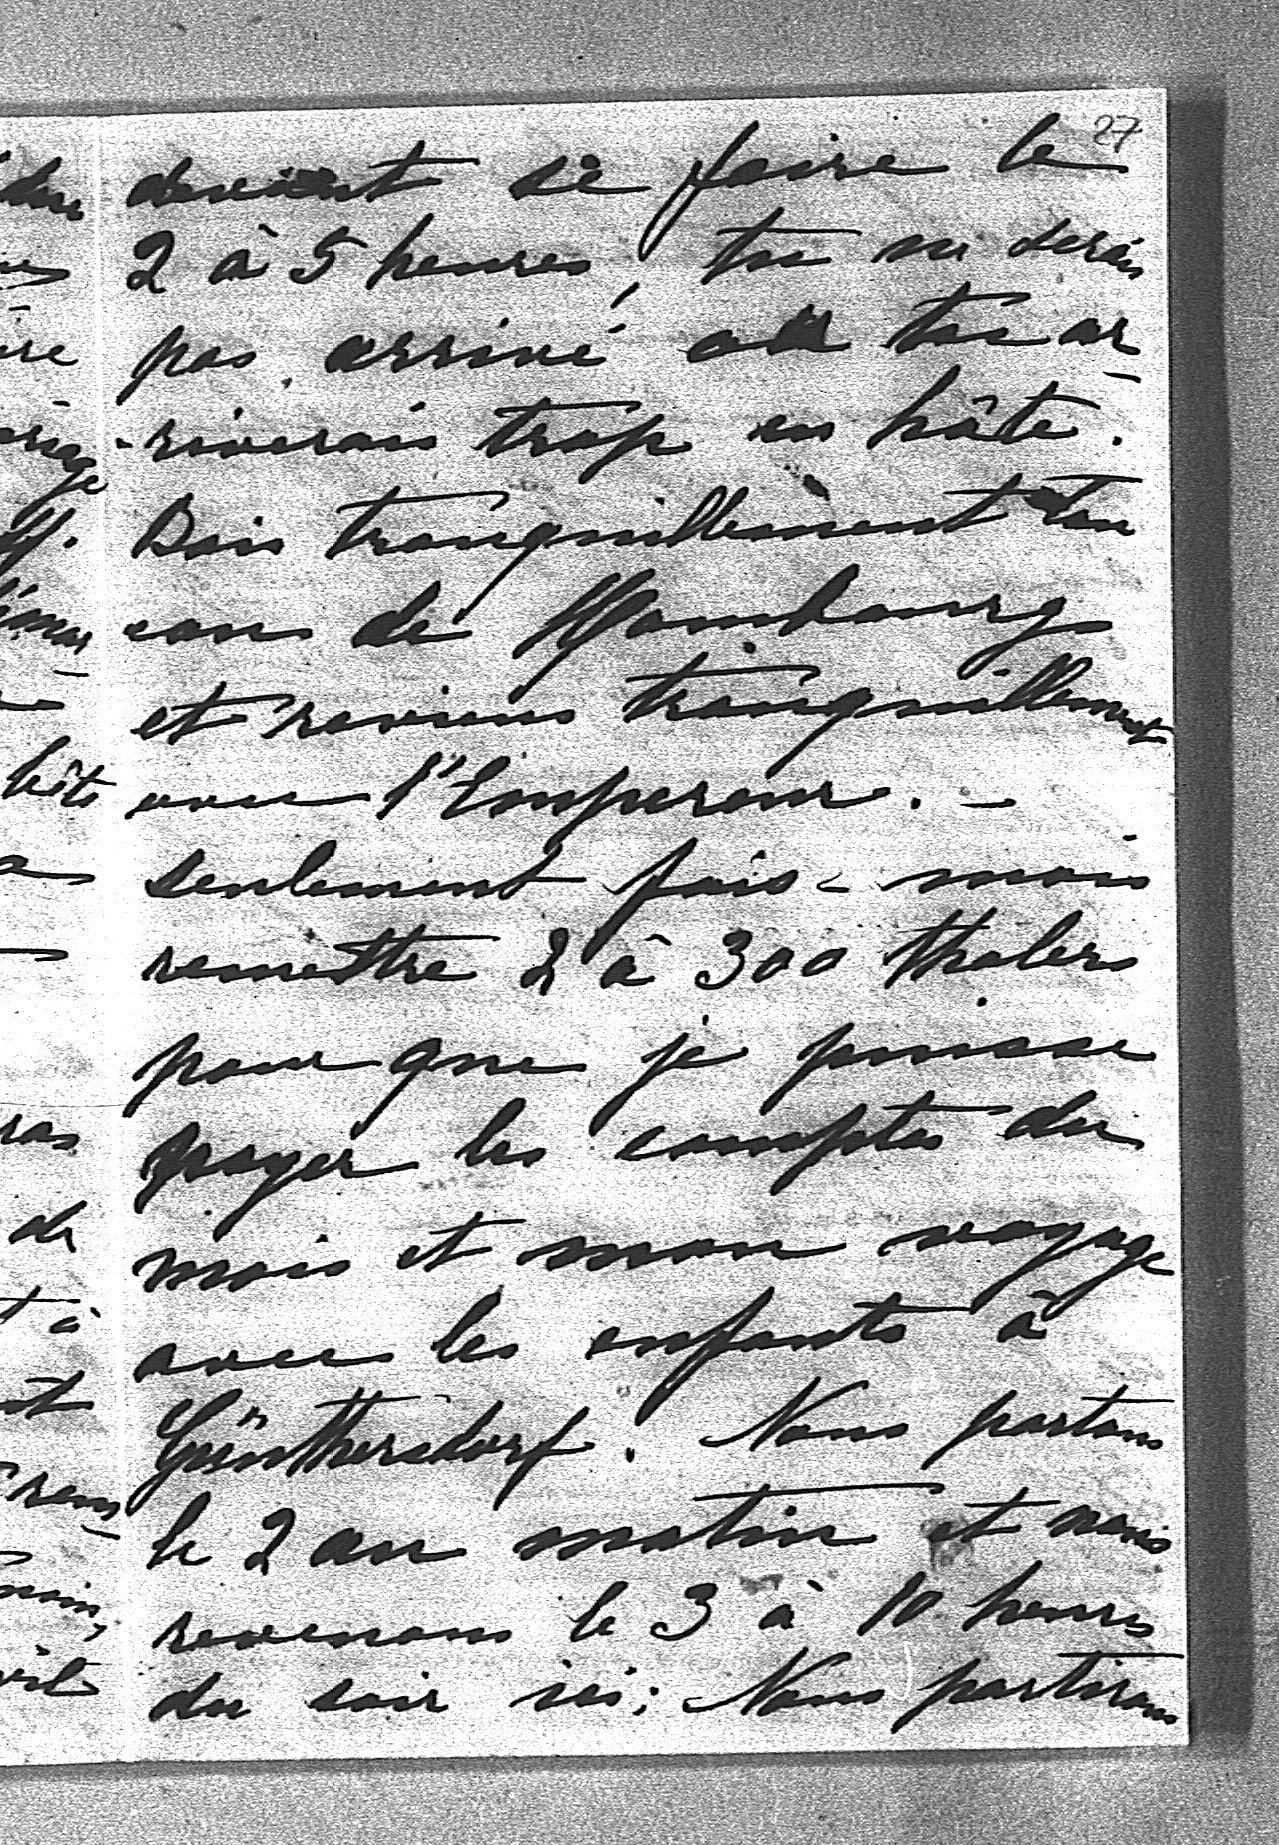 27
devient se faire le
2 à 5 heures, tu ne serais
pas arrivé ou tu ar-
riverais trop en hâte.
Bois tranquillement ton
eau de Hombourg
et reviens tranquillement
avec l'Empereur. —
seulement fais-moi
remettre 2 à 300 thalers
pour que je puisse
payer les comptes du
mois et mon voyage
avec les enfants à
Günthersdorf. Nous partons
le 2 au matin et nous
revenons le 3 à 10 heures
du soir ici; Nous partirons
ire
hôte
a
ras
de
t à